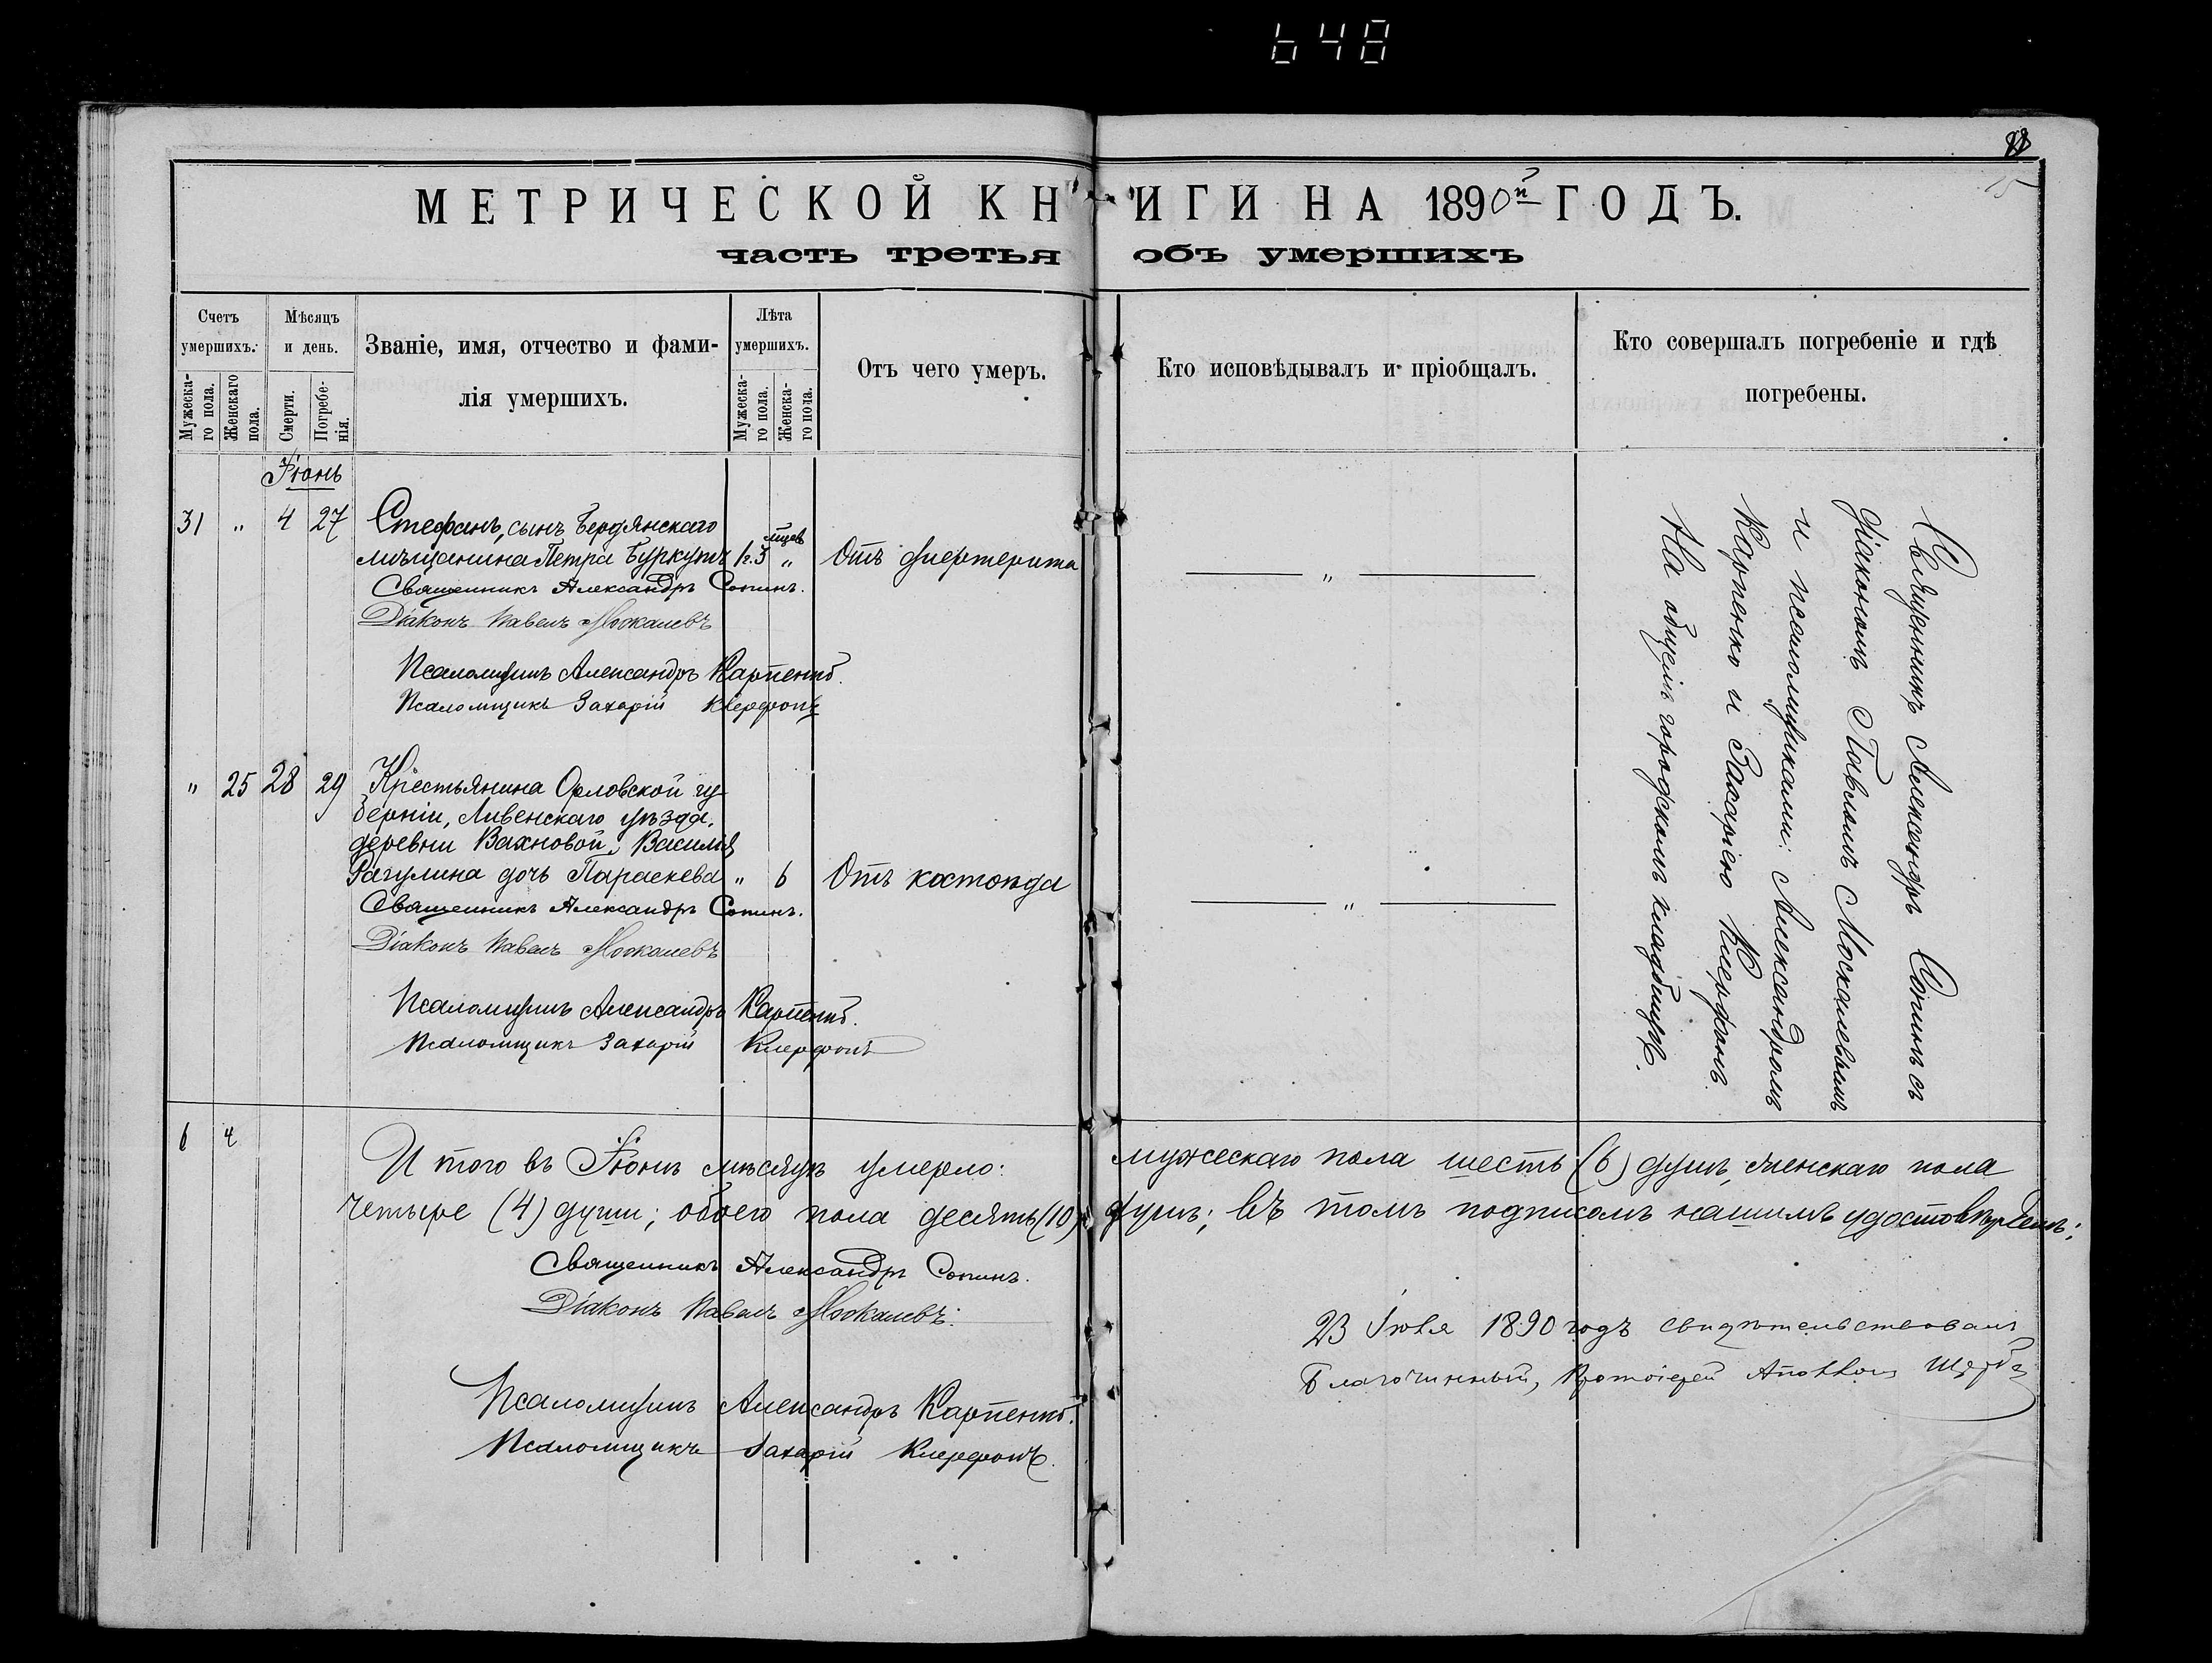 648
МЕТРИЧЕСКОЙ КНИГИ НА 1890й ГОДЪ.
часть третья объ умершихъ
15
Счетъ умершихъ.
Мужескаго пола.
Женскаго пола.
Мѣсяцъ и день.
Смерти.
Погребенія.
Званіе, имя, отчество и фами-
лія умершихъ.
Лѣта умершихъ.
Мужескаго пола.
Женскаго пола.
Отъ чего умеръ.
Кто исповѣдывалъ и пріобщалъ.
Кто совершалъ погребеніе и гдѣ
погребены.
Іюнь
31 " 4 27 Стефанъ, сынъ Бердянскаго
мѣщанина Петра 1г.3 мцев " Отъ дифтерита — " —
Священникъ Александръ Сопинъ.
Діаконъ Павелъ Москалевъ
Псаломщикъ Александръ Карпенко.
Псаломщикъ Захарій Клерфонъ
" 25 28 29 Крестьянина Орловской гу-
берніи, Ливенскаго уѣзда,
деревни Вахновой, Василія
Рагулина дочь Параскева " 6 Отъ костоѣда — " —
Священникъ Александръ Сопинъ.
Діаконъ Павелъ Москалевъ
Псаломщикъ Александръ Карпенко.
Псаломщикъ Захарій Клерфонъ
Священникъ Александръ Сопинъ съ
діакономъ Павломъ Москалевымъ
и псаломщиками: Александромъ
Карпенко и Захаріею Клерфонъ
На общемъ городскомъ кладбищѣ.
6 4
И того въ Іюнѣ мѣсяцѣ умерло: мужескаго пола шесть (6) душъ, женскаго пола
четыре (4) души; обоего пола десять (10) душъ; въ томъ подписомъ нашимъ удостовѣряемъ:
Священникъ Александръ Сопинъ.
Діаконъ Павелъ Москалевъ.
Псаломщикъ Александръ Карпенко.
Псаломщикъ Захарій Клерфонъ.
23 Іюля 1890 годъ свидѣтельствовалъ
Благочинный, Протоіерей